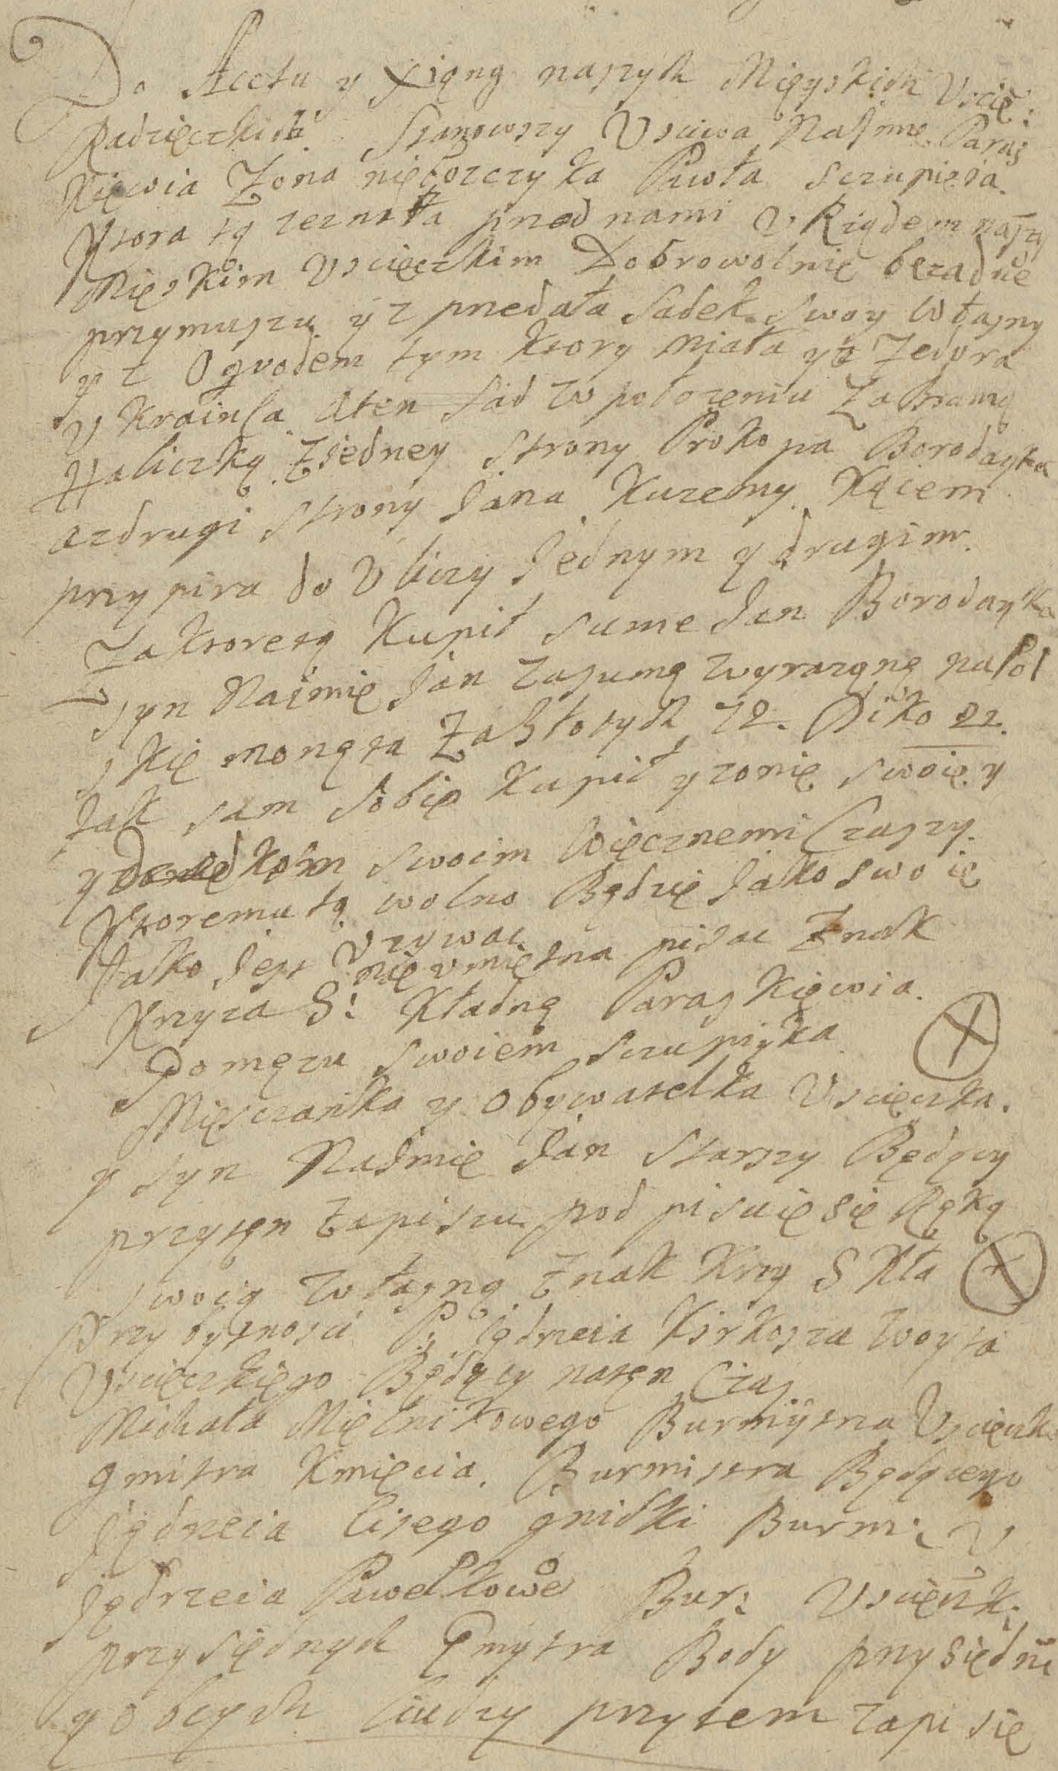 Do Acctu y Xięng naszych Mięyskich Vscię:
Radzieczkich. Stanowszy Vsciwa Na Jmie Paras
Kięwia Zona niębozczyka Pawła Sczupięła.
Ktora tą zeznała przed nami Vrzędem naszy
Mięskim Vscięczkim Dobrowolnię bez adne
przymuszu yz przedała Sadek Swoy Własny
y z Ogrodem tym Ktory miała yz Zedora
V Kraińca Aten Sad w położeniu Za Bramą
Haliczką Zjedney Strony Prokopa Borodayka
azdrugi Strony Jana Kuzemy Kąciem
przypira do Vliczy Jednym y drugim.
Za Ktoretą Kupił sume Jan Borodayka
syn Na Jmię Jan za sumę wyrazoną na Pol
skię monęta Za Złotych 72. Diko 82.
Jak sam sobię Kupił y zonię swoię y
y Kom swoim Więcznemi Czaszy.
Ktoremu tą wolno Będzię Jako swoię
Vzywac
Jako Jest nię vmiętna pisac Znak
Krzyza S: Kładnę Paraskięwia.
Pomęzu swoiem sczupiłka
Mięsczańka y Obywatelka Vscięczka.
y syn Na Jmię Jan starszy Będący
przytęn Zapiszu pod pisuię się Ręką
swoią własną Znak Krzy S Kła
Przy bytnosci P: Jędrzeia Kirkosza Woyta
Vscięczkięgo Będący natęn Czas
Michała Mięlnikowego Burmistrza Vscięczk
Gmitra Kmięcia. Burmistra Będącego
Jędrzeia Lisego gnidki Burm: V
Jędrzeia Pawelkowe Bur: Vscięczk:
przysiędnych Gmytra Body przysiędni
y obcych liudzy przytem Zapi się